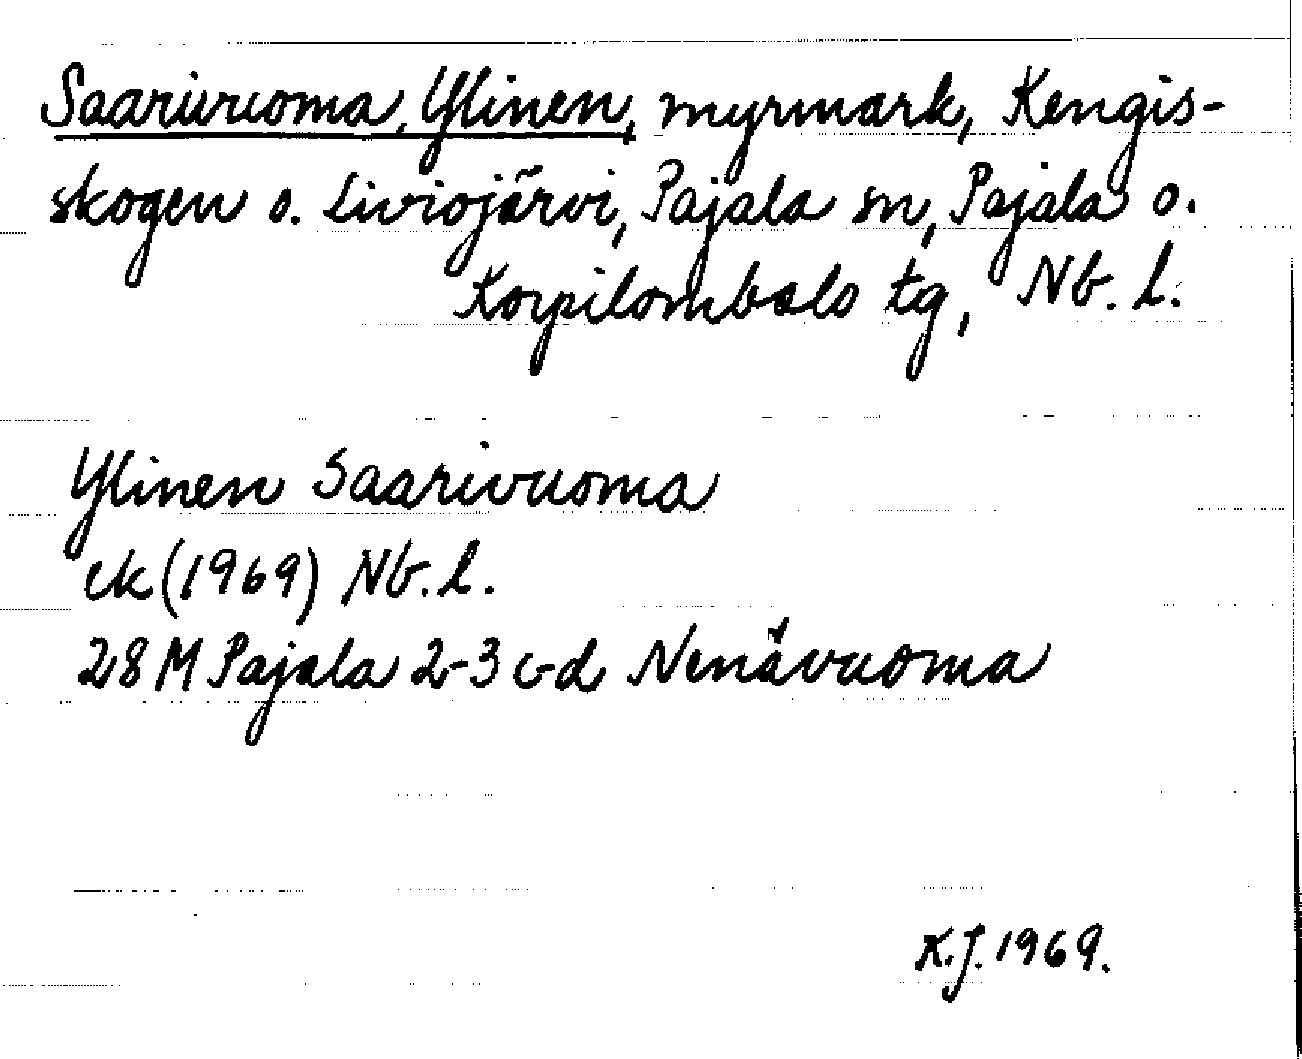 Saarivuoma, Ylinen, myrmark, Kengis-
skogen o. Liviojärvi, Pajala sn, Pajala o.
Korpilombolo tg, Nb. l.
Ylinen Saarivuoma
ek (1969) Nb. l.
28 M Pajala 2-3 c-d Nenävuoma
K.J. 1969.